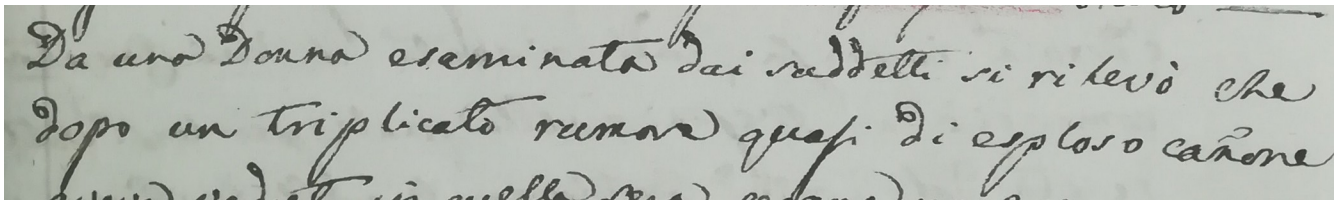 Da una Donna esaminata dai suddetti si rilevò che
dopo un triplicato rumore quasi di esploso cañone